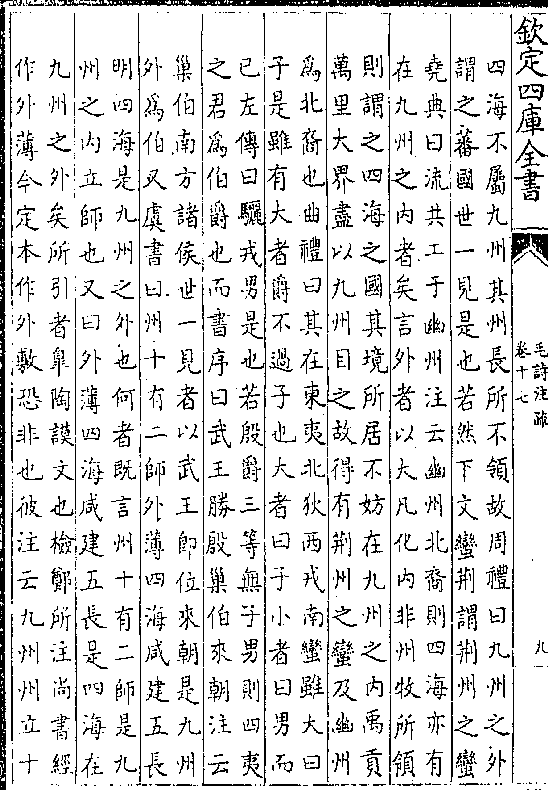 欽定四庫全書
毛詩注疏
卷十七
九
四海不屬九州其州長所不領故周禮曰九州之外
謂之蕃國世一見是也若然下文蠻荆謂荆州之蠻
堯典曰流共工于幽州注云幽州北裔則四海亦有
在九州之内者矣言外者以大凡化内非州牧所領
則謂之四海之國其境所居不妨在九州之内禹貢
萬里大界盡以九州目之故得有荆州之蠻及幽州
為北裔也曲禮曰其在東夷北狄西戎南蠻雖大曰
子是雖有大者爵不過子也大者曰子小者曰男而
已左傳曰驪戎男是也若殷爵三等無子男則四夷
之君為伯爵也而書序曰武王勝殷巢伯來朝注云
巢伯南方諸侯世一見者以武王即位來朝是九州
外為伯又虞書曰州十有二師外薄四海咸建五長
明四海是九州之外也何者既言州十有二師是九
州之内立師也又曰外薄四海咸建五長是四海在
九州之外矣所引者臯陶謨文也檢鄭所注尚書經
作外薄今定本作外敷恐非也彼注云九州州立十